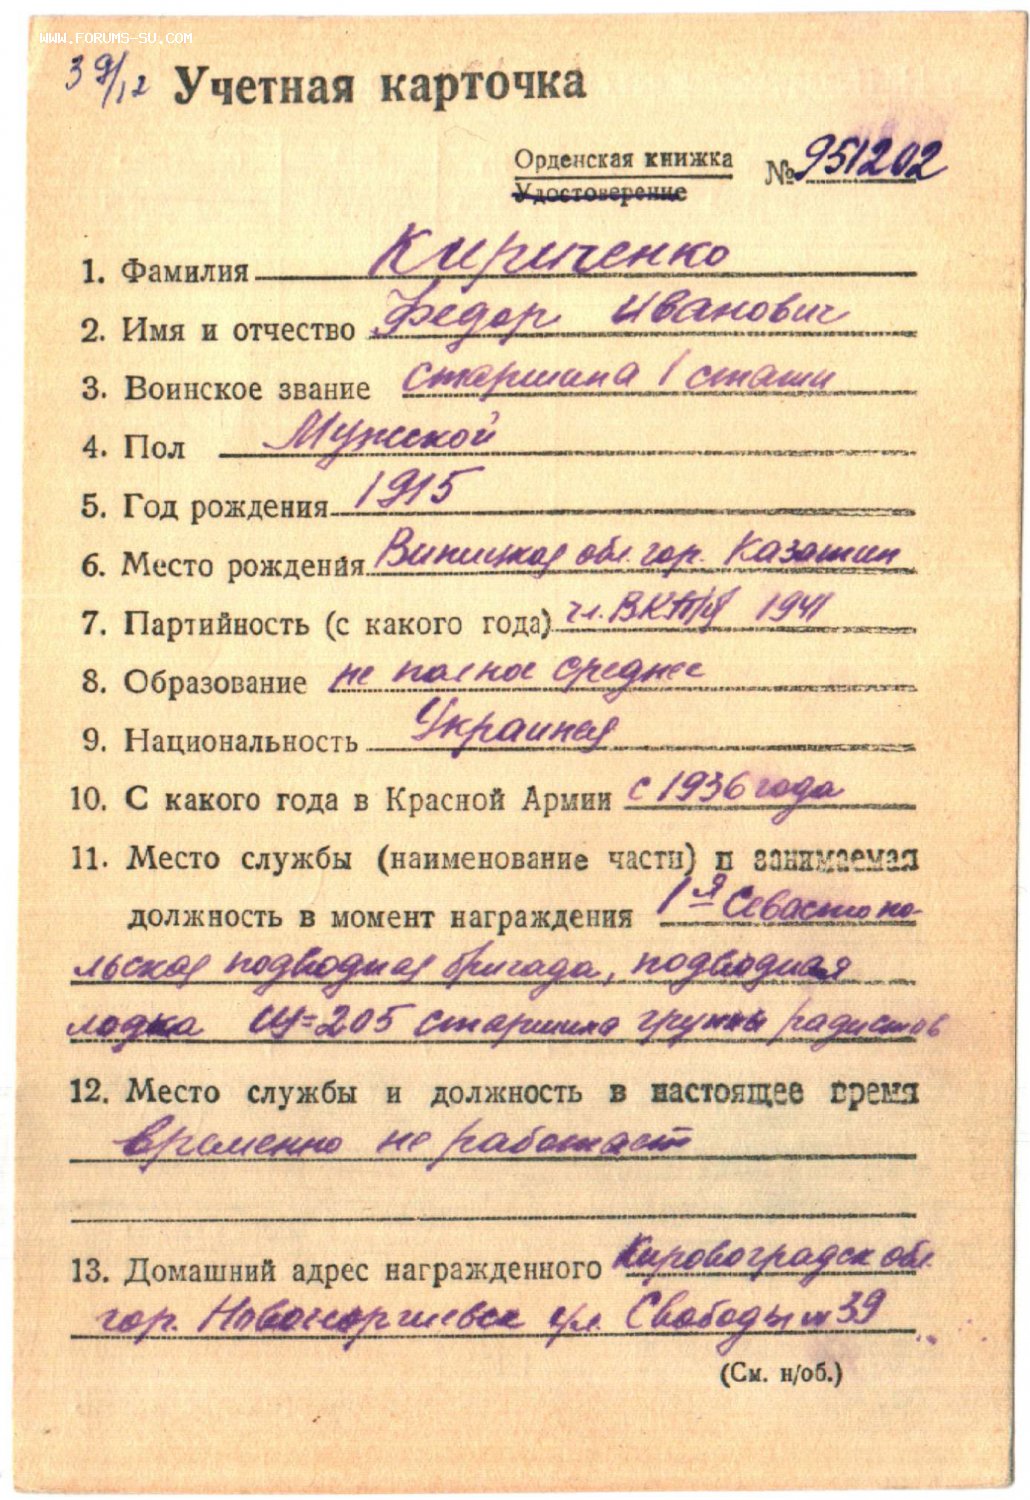 WWW.FORUMS-SU.COM
39/12 Учетная карточка
Орденская книжка № 951202
Удостоверение
1. Фамилия Кириченко
2. Имя и отчество Федор Иванович
3. Воинское звание старшина 1 статьи
4. Пол Мужской
5. Год рождения 1915
6. Место рождения Виницкая обл. гор. Казатин
7. Партийность (с какого года) чл. ВКП/б 1941
8. Образование не полное среднее
9. Национальность
10. С какого года в Красной Армии с 1936 года
11. Место службы (наименование части) и занимаемая
должность в момент награждения 1я Севастопо-
льская подводная бригада, подводная
лодка Щ=205 старшина группы радистов
12. Место службы и должность в настоящее время
временно не работает
13. Домашний адрес награжденного Кировоградск обл.
гор. Новогеоргиевск ул. Свободы 39
(См. н/об.)